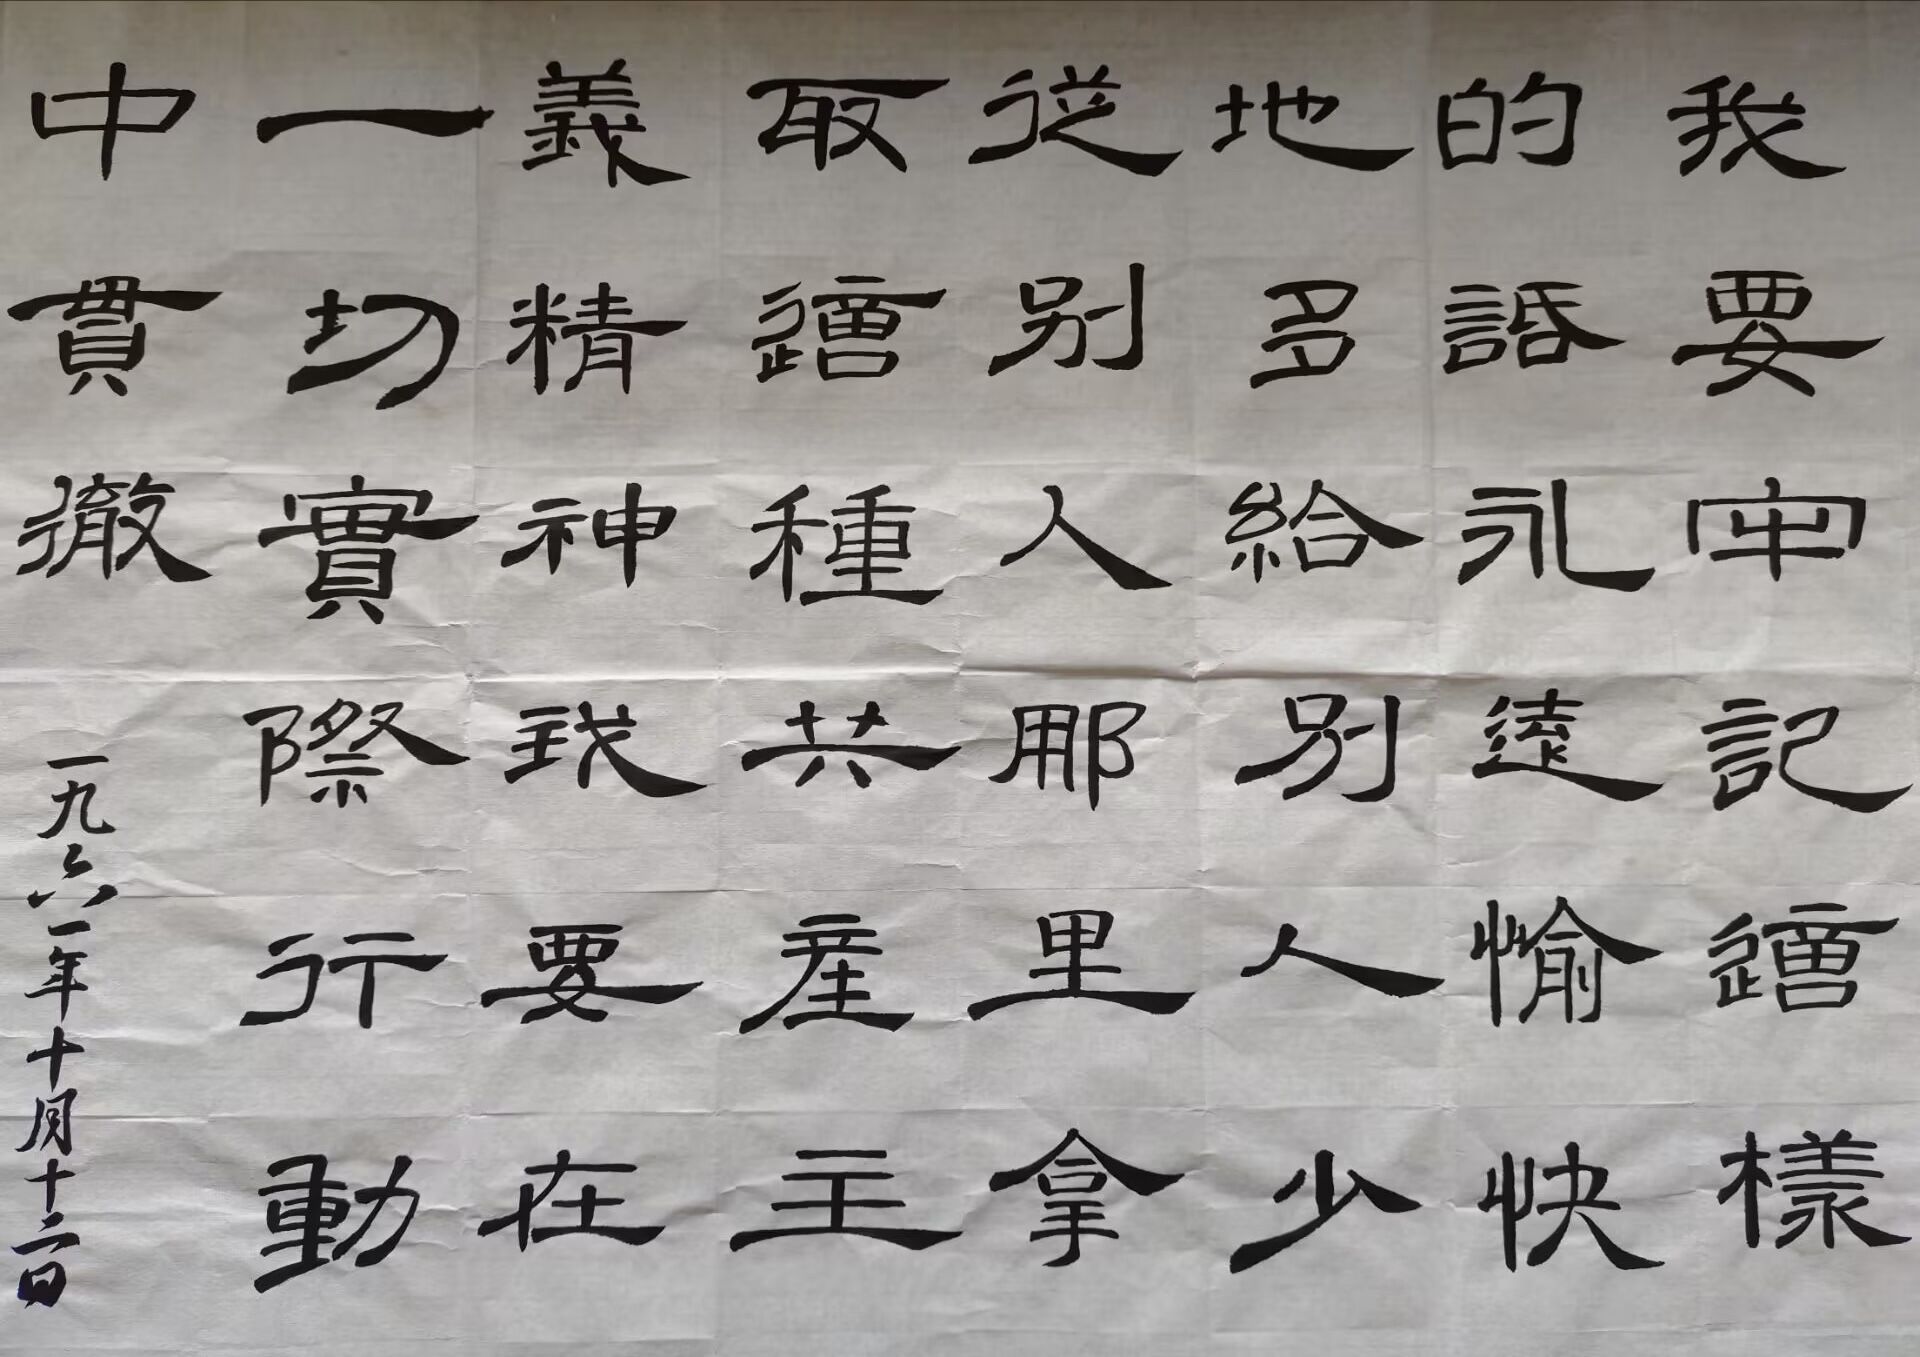 我要牢記這樣
的話永遠愉快
地多給別人少
從別人那里拿
取這種共産主
義精神我要在
一切實際行動
中貫徹
一九六一年十月十二日